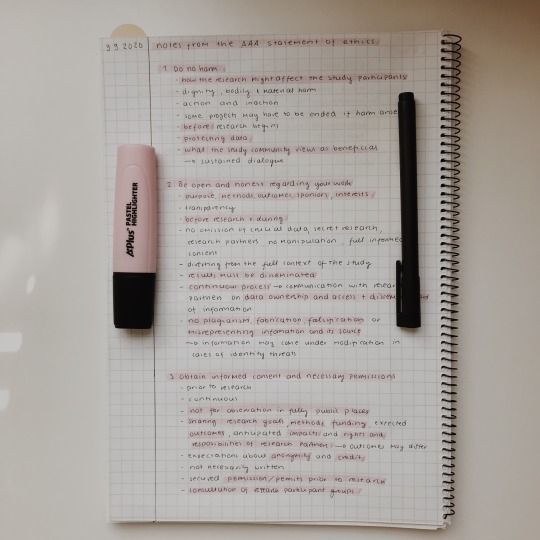 9.9.2020 notes from the AAA statement of ethics
1. Do no harm
- how the research might affect the study participants
- dignity, bodily & material harm
- action and inaction
- some projects may have to be ended if harm arise
- before research begins
- protecting data
- what the study community views as beneficial
→ sustained dialogue
2. Be open and honest regarding your work
- purpose, methods, outcomes, sponsors, interests
- transparency
- before research & during
- no omission of crucial data, secret research,
research partners no manipulation, full informed
consent
- diverting from the full context of the study
- results must be disseminated
- continuous process → communication with resear
partners on data ownership and access +
of information
- no plagiarism, fabrication, falsification or
misrepresenting information and its source
→ information may come under modification in
cases of identity threats
3. Obtain informed consent and necessary permissions
- prior to research
- continuous
- not for observation in fully public places
- sharing research goals, methods, funding, expected
outcomes, anticipated impacts and rights and
responsibilities of research partners → outcomes may differ
- expectations about anonymity and credit
- not necessarily written
- secured permission/permits prior to research
- consultation of participant groups
A+Plus PASTEL
HIGHLIGHTER